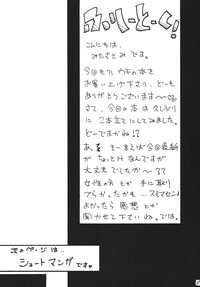 ふりーとーく!
こんにちは、
みたさとみです。
今回もウチの本を
お買い上げ下さり、どーも
ありがとうございますー
さて、今回の本は久しぶり
に2本立てにしてみました。
どーですかね!?
あ、そーそーえば今回表紙
がちょっとHなんですが
大丈夫でしたか〜?
女性の方とか手に取り
づらかったかも…スミマセン
よかったら感想とか
聞かせて下さいね。では。
次のページは…
ショートマンガです。